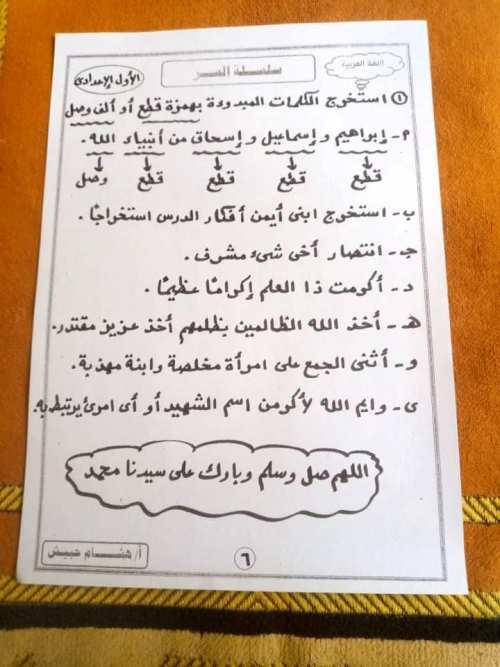 اللغة العربية
سلسلة السر
الأول الإعدادى
١ استخرج الكلمات المبدوءة بهمزة قطع أو ألف وصل
م - إبراهيم وإسماعيل وإسحاق من أنبياء الله.
قطع قطع قطع قطع وصل
ب - استخرج ابنى أيمن أفكار الدرس استخراجًا.
جـ - انتصار أخى شئ مشرف.
د - أكرمت ذا العلم إكرامًا عظيمًا.
هـ - أخذ الله الظالمين بظلمهم أخذ عزيز مقتدر.
و - أثنى الجمع على امرأة مخلصة وابنة مهذبة.
ى - وايم الله لأكرمن اسم الشهيد أو أى امرئ يرتبط به.
اللهم صل وسلم وبارك على سيدنا محمد
٦
أ/ هشام حبيش